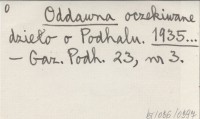 0
Oddawna oczekiwane
dzieło o Podhalu. 1935...
– Gaz. Podh. 23, nr 3.